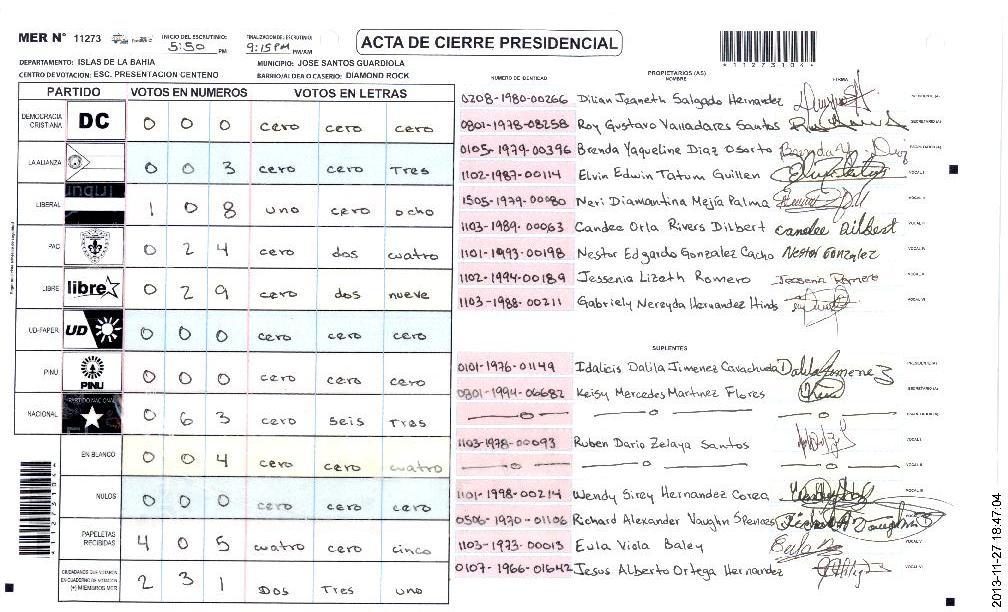 MER N° 11273
INICIO DEL ESCRUTINIO: 5:50 PM
FINALIZACION DEL ESCRUTINIO: 9:15 PM PM/AM
ACTA DE CIERRE PRESIDENCIAL
1127310
DEPARTAMENTO: ISLAS DE LA BAHIA
MUNICIPIO: JOSE SANTOS GUARDIOLA
CENTRO DE VOTACION: ESC. PRESENTACION CENTENO
BARRIO/ALDEA O CASERIO: DIAMOND ROCK
PARTIDO VOTOS EN NUMEROS VOTOS EN LETRAS
DEMOCRACIA CRISTIANA DC 0 0 0 cero cero cero
LA ALIANZA 0 0 3 cero cero Tres
LIBERAL 1 0 8 uno cero ocho
PAC 0 2 4 cero dos cuatro
LIBRE libre 0 2 9 cero dos nueve
UD-FAPER UD 0 0 0 cero cero cero
PINU PINU 0 0 0 cero cero cero
NACIONAL PARTIDO NACIONAL 0 6 3 cero seis Tres
EN BLANCO 0 0 4 cero cero cuatro
NULOS 0 0 0 cero cero cero
PAPELETAS RECIBIDAS 4 0 5 cuatro cero cinco
CIUDADANOS QUE VOTARON EN CUADERNO DE VOTACION (+) MIEMBROS MER 2 3 1 Dos Tres uno
NUMERO DE IDENTIDAD
PROPIETARIOS (AS)
NOMBRE
FIRMA
0208-1980-00266 Dilian Jeaneth Salgado Hernandez
0801-1978-08258 Roy Gustavo Valladares Santos
0105-1979-00396 Brenda Yaqueline Diaz Osorto
1102-1987-00114 Elvin Edwin Tatum Guillen
1505-1979-00080 Neri Diamantina Mejía Palma
1103-1989-00063 Candee Orla Rivers Dilbert candee Dilbert
1101-1993-00198 Nestor Edgardo Gonzalez Cacho Nestor Gonzalez
1102-1994-00189 Jessenia Lizeth Romero Jessenia Romero
1103-1988-00211 Gabriely Nereyda Hernandez Hinds
SUPLENTES
0101-1976-01149 Idalicis Dalila Jimenez Cavachuela Dalila Jimenez
0801-1994-06682 Keisy Mercedes Martinez Flores
1103-1978-00093 Ruben Dario Zelaya Santos
1101-1998-00214 Wendy Sirey Hernandez Corea
0506-1970-01106 Richard Alexander Vaughn Spences
1103-1973-00013 Eula Viola Baley
0107-1966-01642 Jesus Alberto Ortega Hernandez
2013-11-27 18:47:04